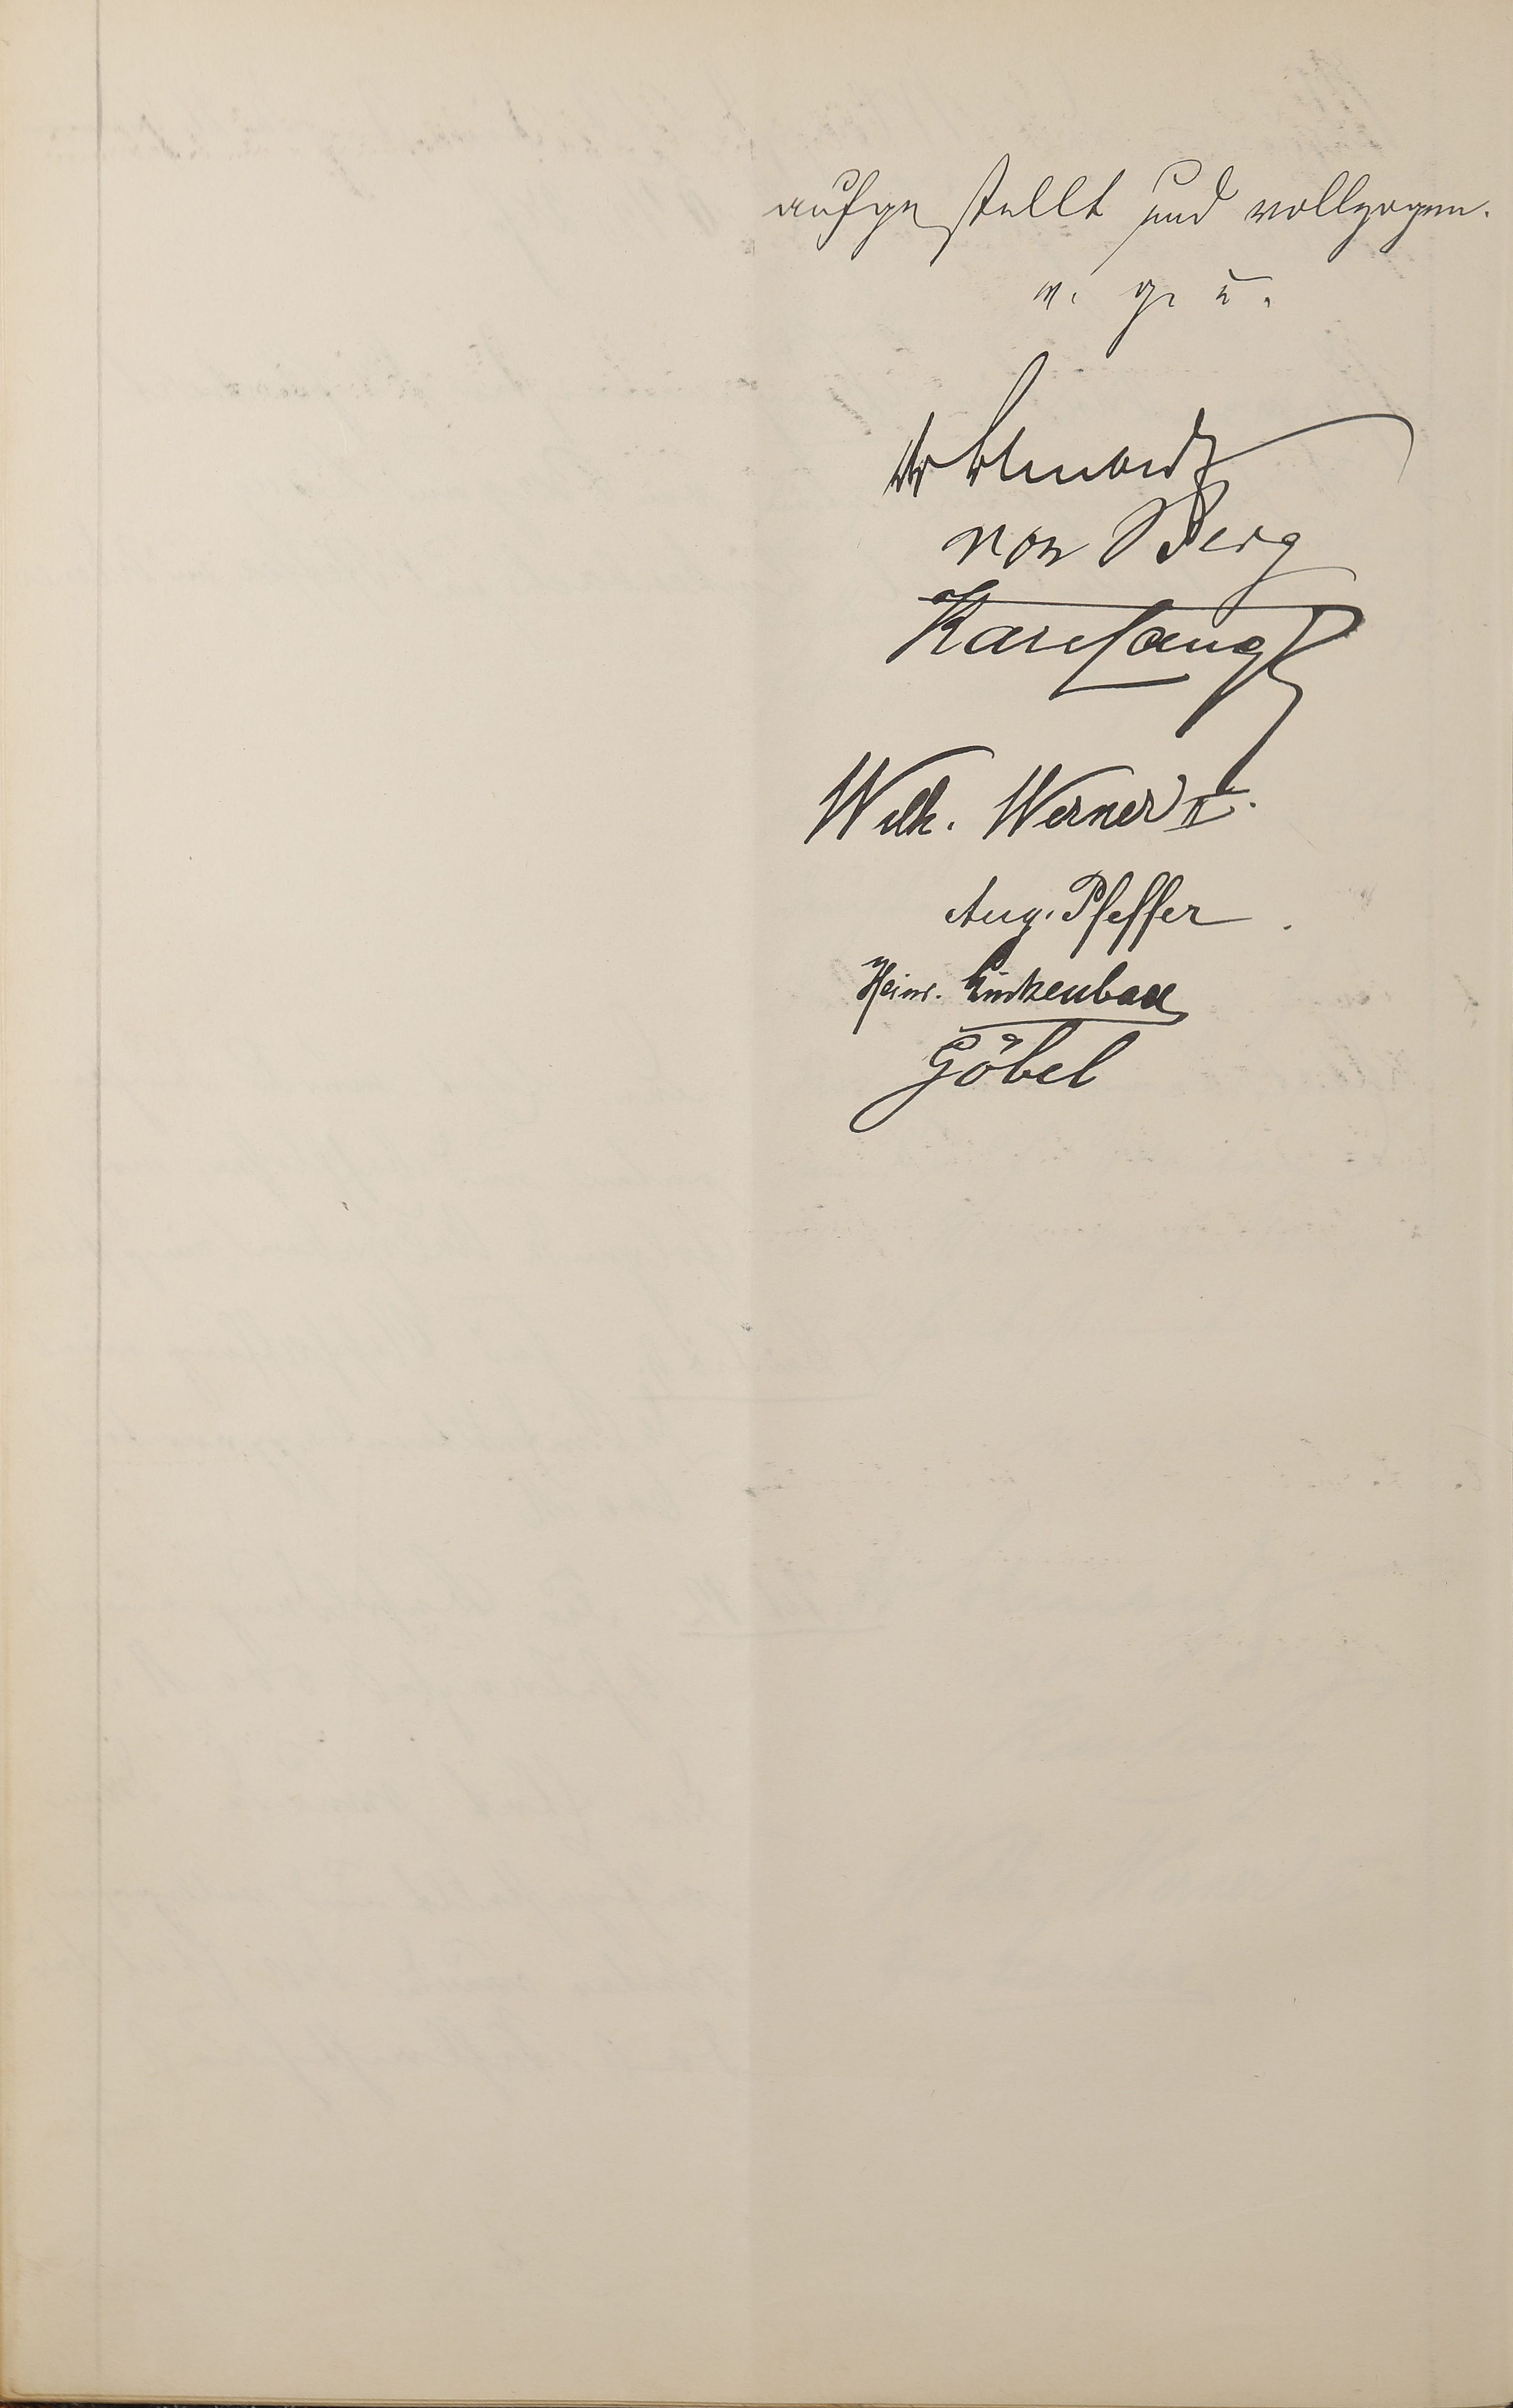 aufgestellt und vollzogen.
v. g. u.
von Berg
Karl Lang
Wilh. Werner II.
Aug. Pfeffer
Heinr.
Göbel